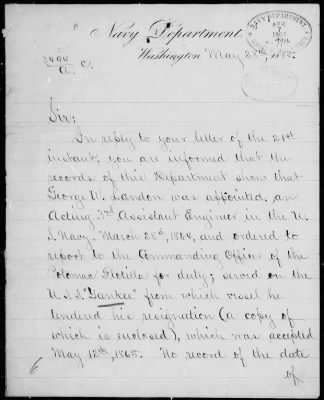 Navy Department,
Washington May
3494
Sir:
In reply to your letter of the 21st
instant, you are informed that the
records of this Department show that
George W. Landon was appointed an
Acting 3rd Assistant Engineer in the U.
S. Navy, March 28th, 1864, and ordered to
report to the Commanding Officer of the
Potomac Flotilla for duty; served on the
U.S.S. "Yankee" from which vessel he
tendered his resignation (a copy of
which is enclosed), which was accepted
May 12th, 1865. No record of the date
of